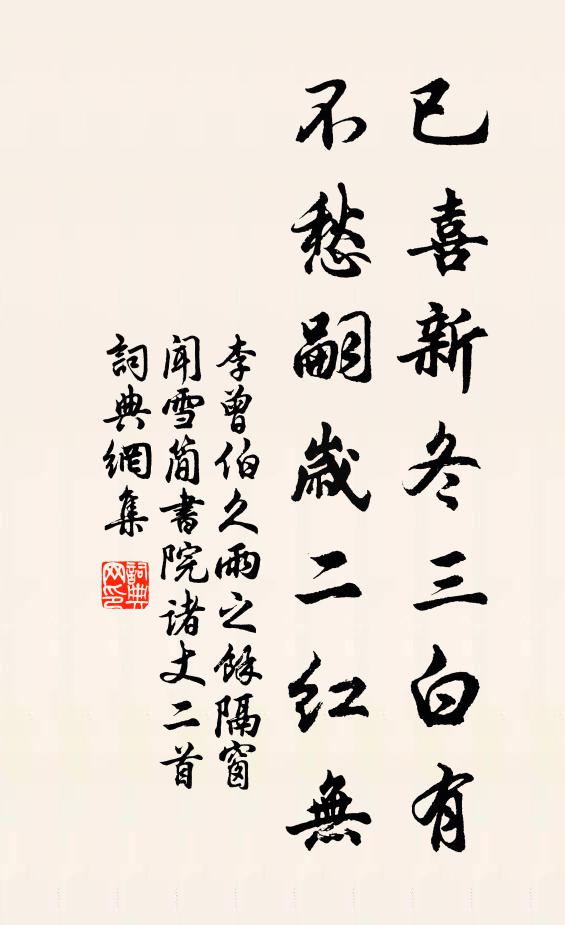 已喜新冬三白有
不愁嗣歲二红無
李曾伯久雨之餘隔窗
闻雪简書院诸丈二首
詞典網集
詞典网印